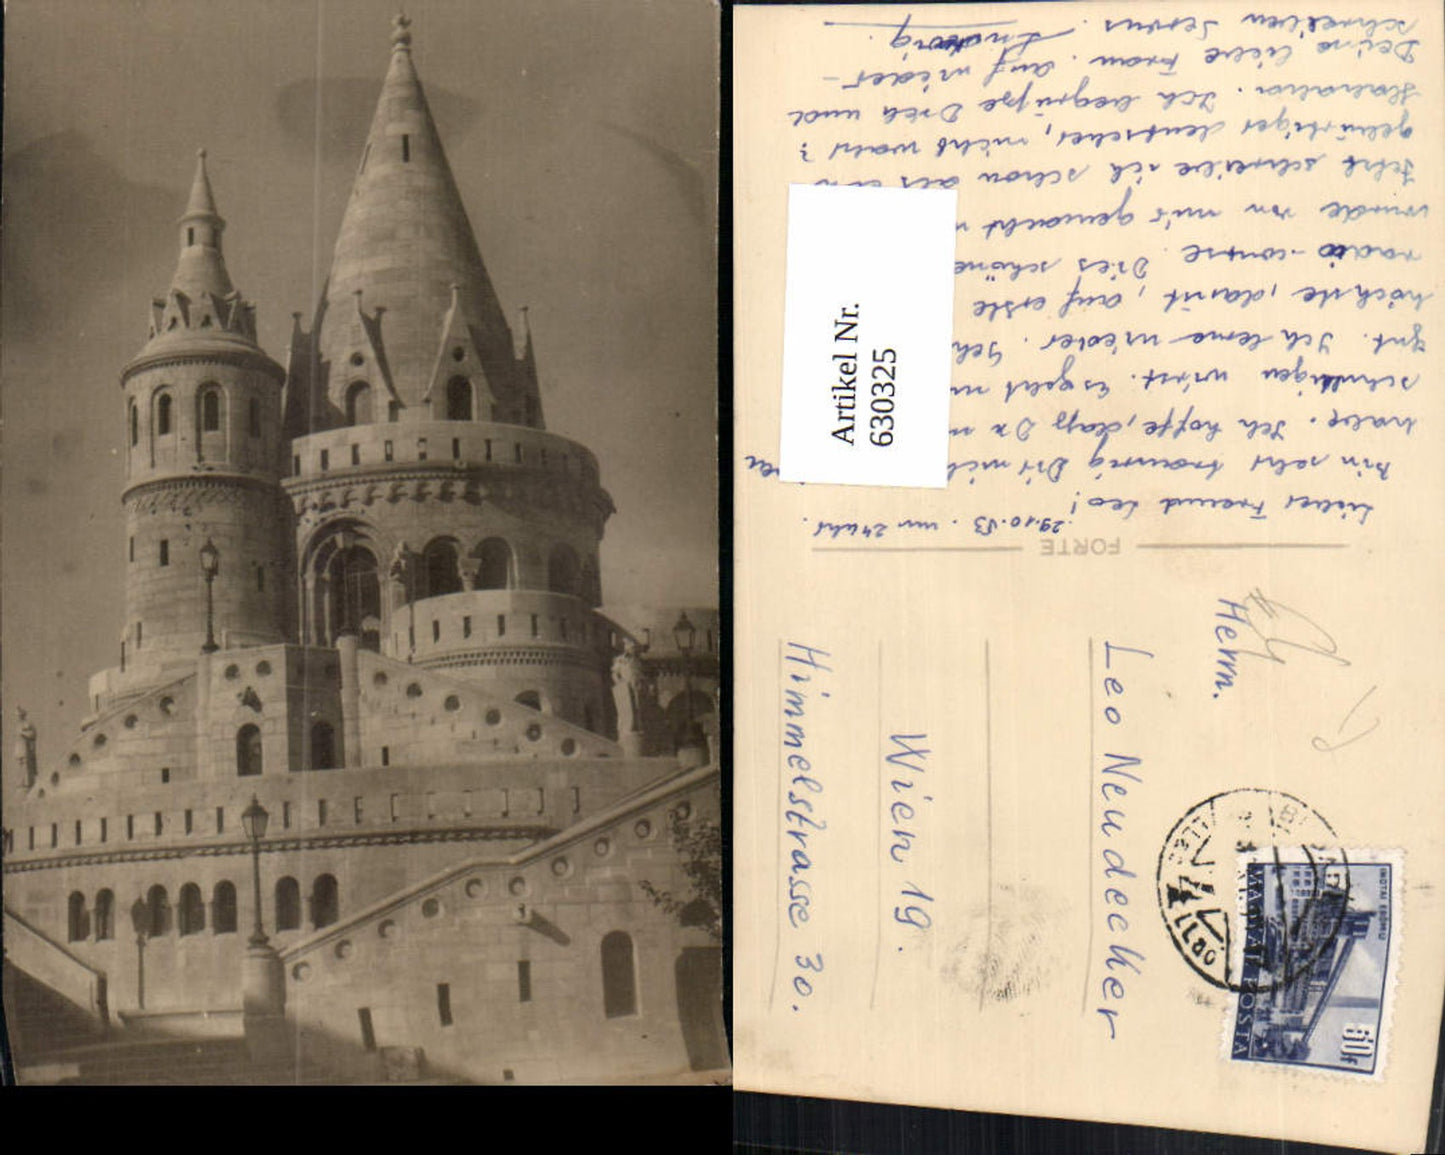 Artikel Nr.
630325
29.10.53. um 24 Uhr.
Lieber Freund Leo!
bin sehr traurig Dir
habe. Ich hoffe, dass Du
wirst. Es geht
gut. Ich lerne wieder. Ich
höchste, damit, auf erste
radio-conste. Dies schöne
wurde von mir gemacht
Jetzt schreibe ich schon als ein
gebürtiger deutscher, nicht wahr?
Hahaha. Ich begrüsse Dich und
Deine liebe Frau. Auf wieder-
schreiben Servus.
FORTE
Herrn.
Leo Neudecker
Wien 19.
Himmelstrasse 30.
INOTAI ERŐMŰ
60f
MAGYAR POSTA